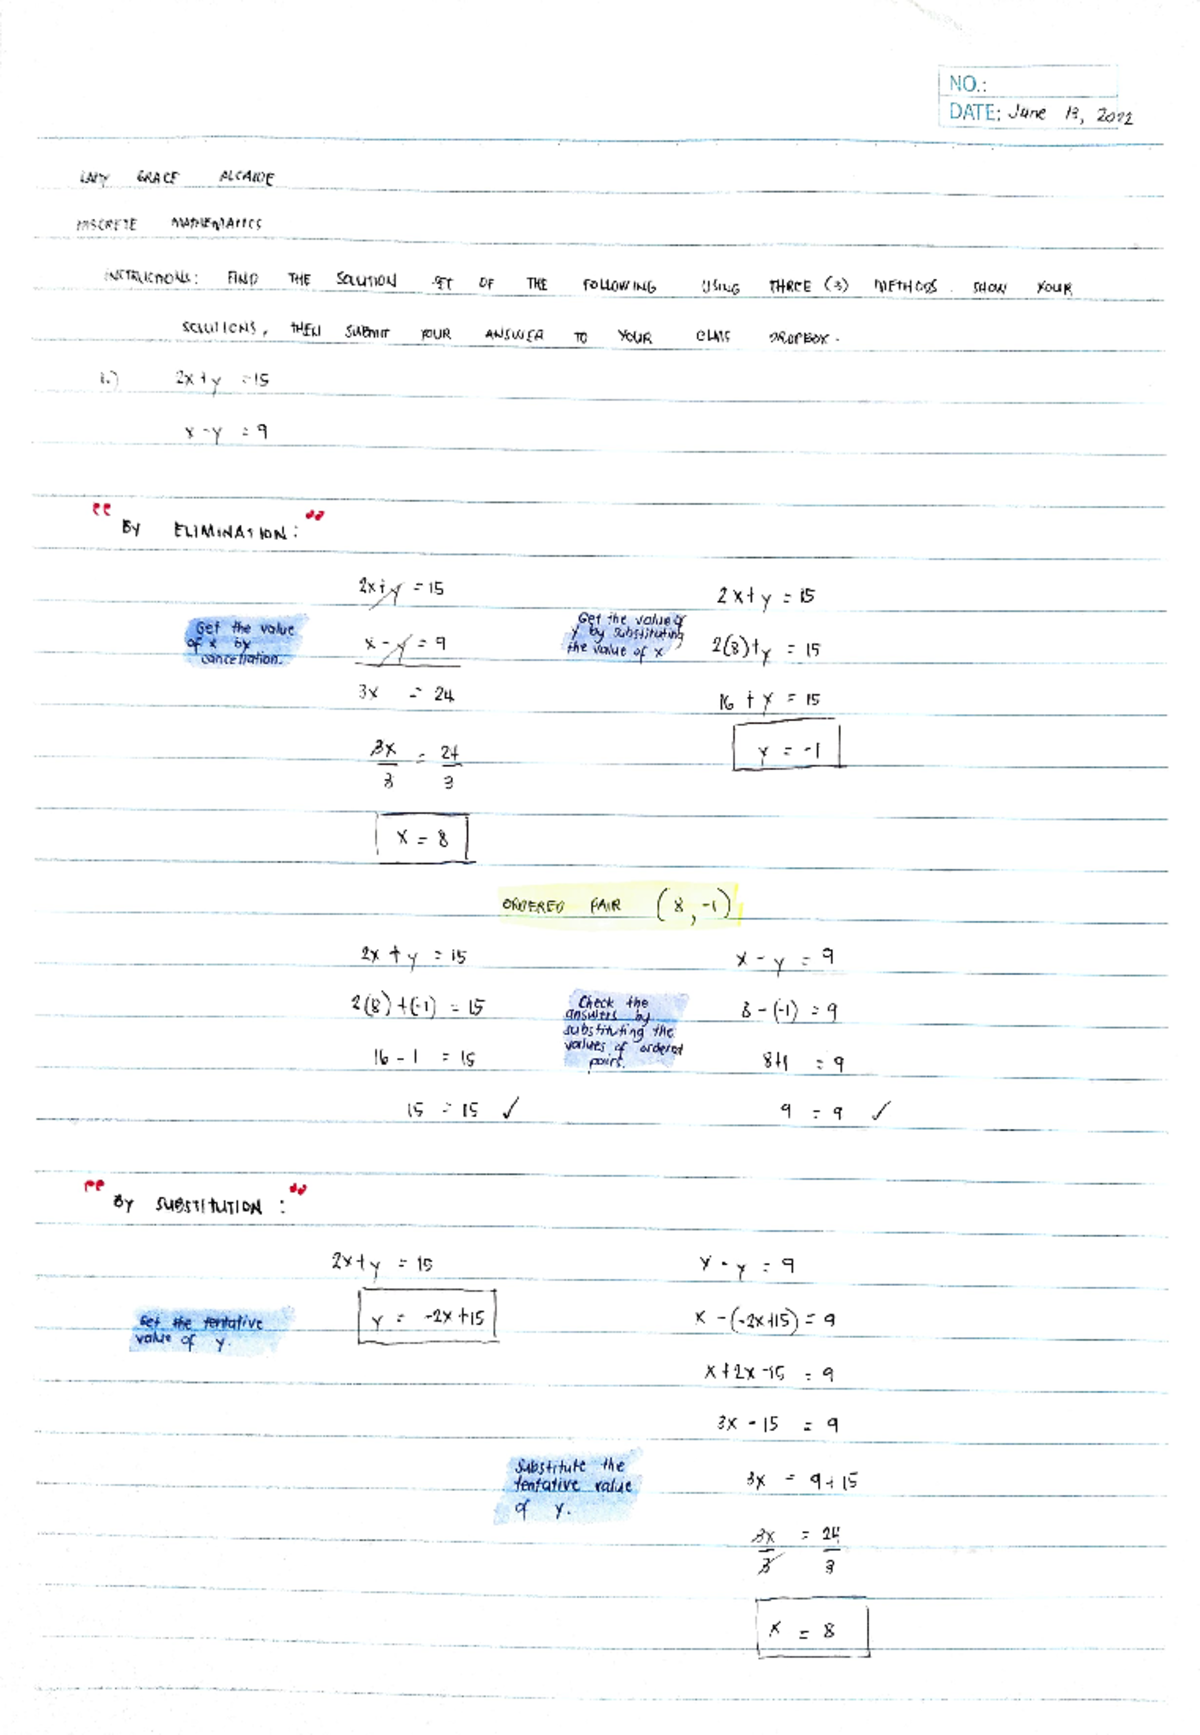 NO.:
DATE: June 13, 2022
LADY GRACE ALCAIDE
DISCRETE MATHEMATICS
INSTRUCTIONS: FIND THE SOLUTION SET OF THE FOLLOWING USING THREE (3) METHODS. SHOW YOUR
SOLUTIONS, THEN SUBMIT YOUR ANSWER TO YOUR CLASS DROPBOX.
1.) 2x + y = 15
x - y = 9
"BY ELIMINATION:"
2x + y = 15
2x + y = 15
Get the value
of x by
cancellation.
x - y = 9
Get the value of
y by substituting
the value of x
2(8) + y = 15
3x = 24
16 + y = 15
3x/3 = 24/3
y = -1
x = 8
ORDERED PAIR (8, -1)
2x + y = 15
x - y = 9
2(8) + (-1) = 15
Check the
answers by
substituting the
values of ordered
pairs.
8 - (-1) = 9
16 - 1 = 15
8+1 = 9
15 = 15 ✓
9 = 9 ✓
"BY SUBSTITUTION:"
2x + y = 15
x - y = 9
Get the tentative
value of y.
y = -2x + 15
x - (-2x + 15) = 9
x + 2x - 15 = 9
3x - 15 = 9
Substitute the
tentative value
of y.
3x = 9 + 15
3x/3 = 24/3
x = 8